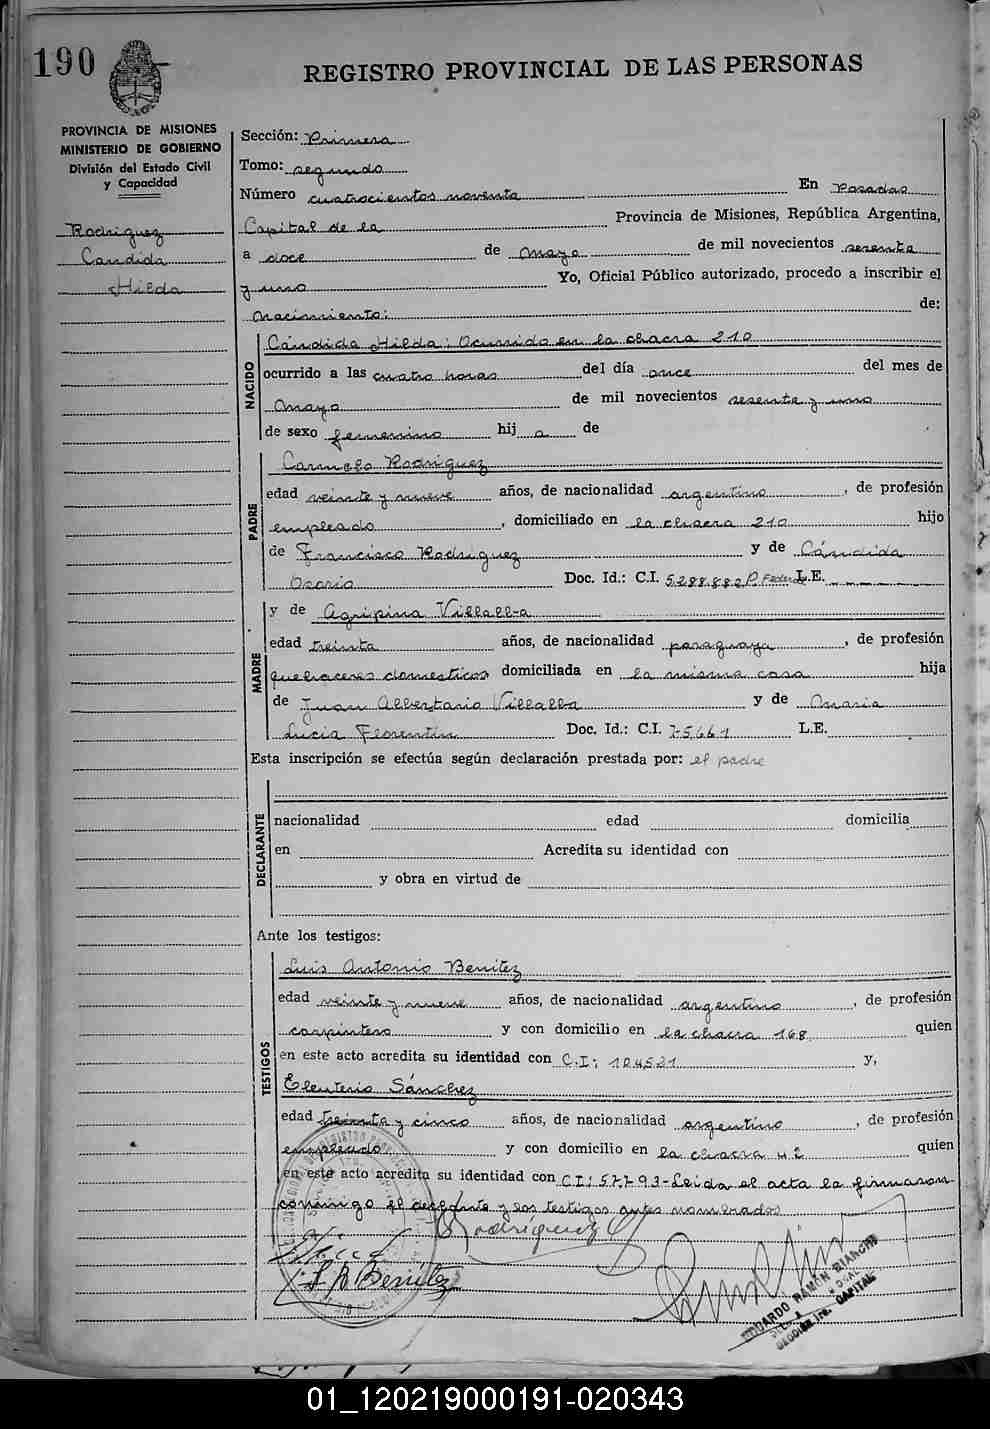 190
REGISTRO PROVINCIAL DE LAS PERSONAS
PROVINCIA DE MISIONES
MINISTERIO DE GOBIERNO
División del Estado Civil
y Capacidad
Rodriguez
Candida
Hilda
Sección: Primera
Tomo: segundo
Número cuatrocientos noventa En Posadas
Capital de la Provincia de Misiones, República Argentina,
a doce de mayo de mil novecientos sesenta
y uno Yo, Oficial Público autorizado, procedo a inscribir el
nacimiento: de:
NACIDO
Cándida Hilda: Ocurrido en la chacra 210
ocurrido a las cuatro horas del día once del mes de
mayo de mil novecientos sesenta y uno
de sexo femenino hij a de
PADRE
Carmelo Rodriguez
edad veinte y nueve años, de nacionalidad argentino, de profesión
empleado, domiciliado en la chacra 210 hijo
de Francisco Rodriguez y de Cándida
Osorio Doc. Id.: C.I. 5.288.882 P. Federal L.E.
MADRE
y de Agripina Villalba
edad treinta años, de nacionalidad paraguaya, de profesión
quehaceres domesticos domiciliada en la misma casa hija
de Juan Albertano Villalba y de Maria
Lucia Florentín Doc. Id.: C.I. 75661 L.E.
Esta inscripción se efectúa según declaración prestada por: el padre
DECLARANTE
nacionalidad edad domicilia
en Acredita su identidad con
y obra en virtud de
Ante los testigos:
TESTIGOS
Luis Antonio Benitez
edad veinte y nueve años, de nacionalidad argentino, de profesión
carpintero y con domicilio en la chacra 168 quien
en este acto acredita su identidad con C.I: 104531 y,
Eleuterio Sánchez
edad treinta y cinco años, de nacionalidad argentino, de profesión
empleado y con domicilio en la chacra 42 quien
en este acto acredita su identidad con C I: 57793- Leida el acta la firmaron
conmigo el declarante y los testigos antes nombrados
Rodríguez C
L A Benítez
EDUARDO RAMÓN BIANCHI
SECCIÓN 1ra. CAPITAL
01_120219000191-020343